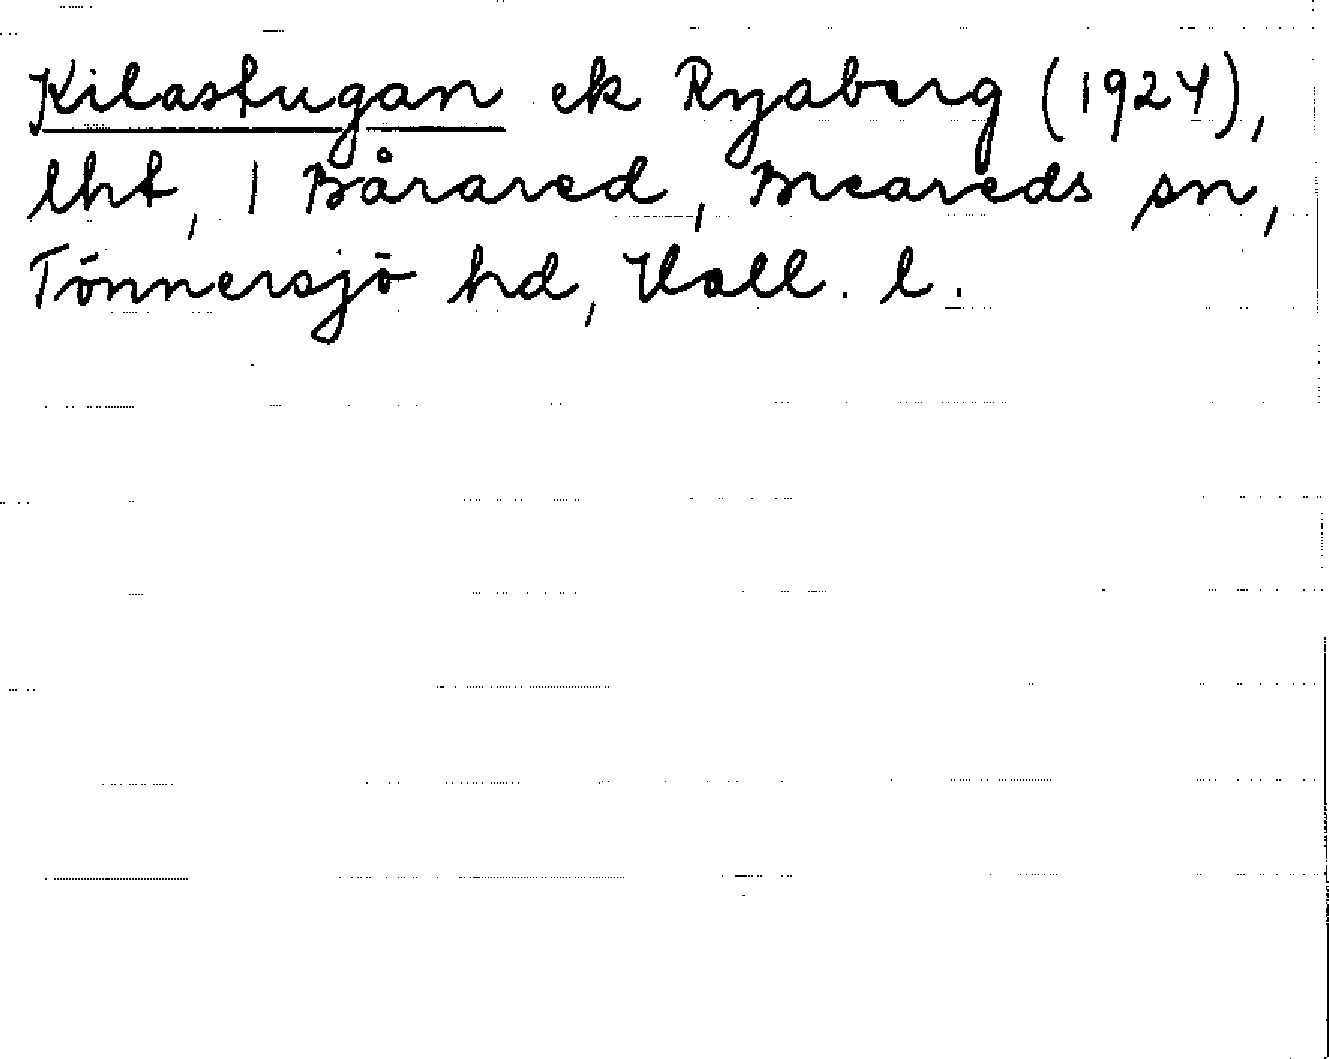 Kilastugan ek Ryaberg (1924),
lht, 1 Bårared, Breareds sn,
Tönnersjö hd, Hall. l.